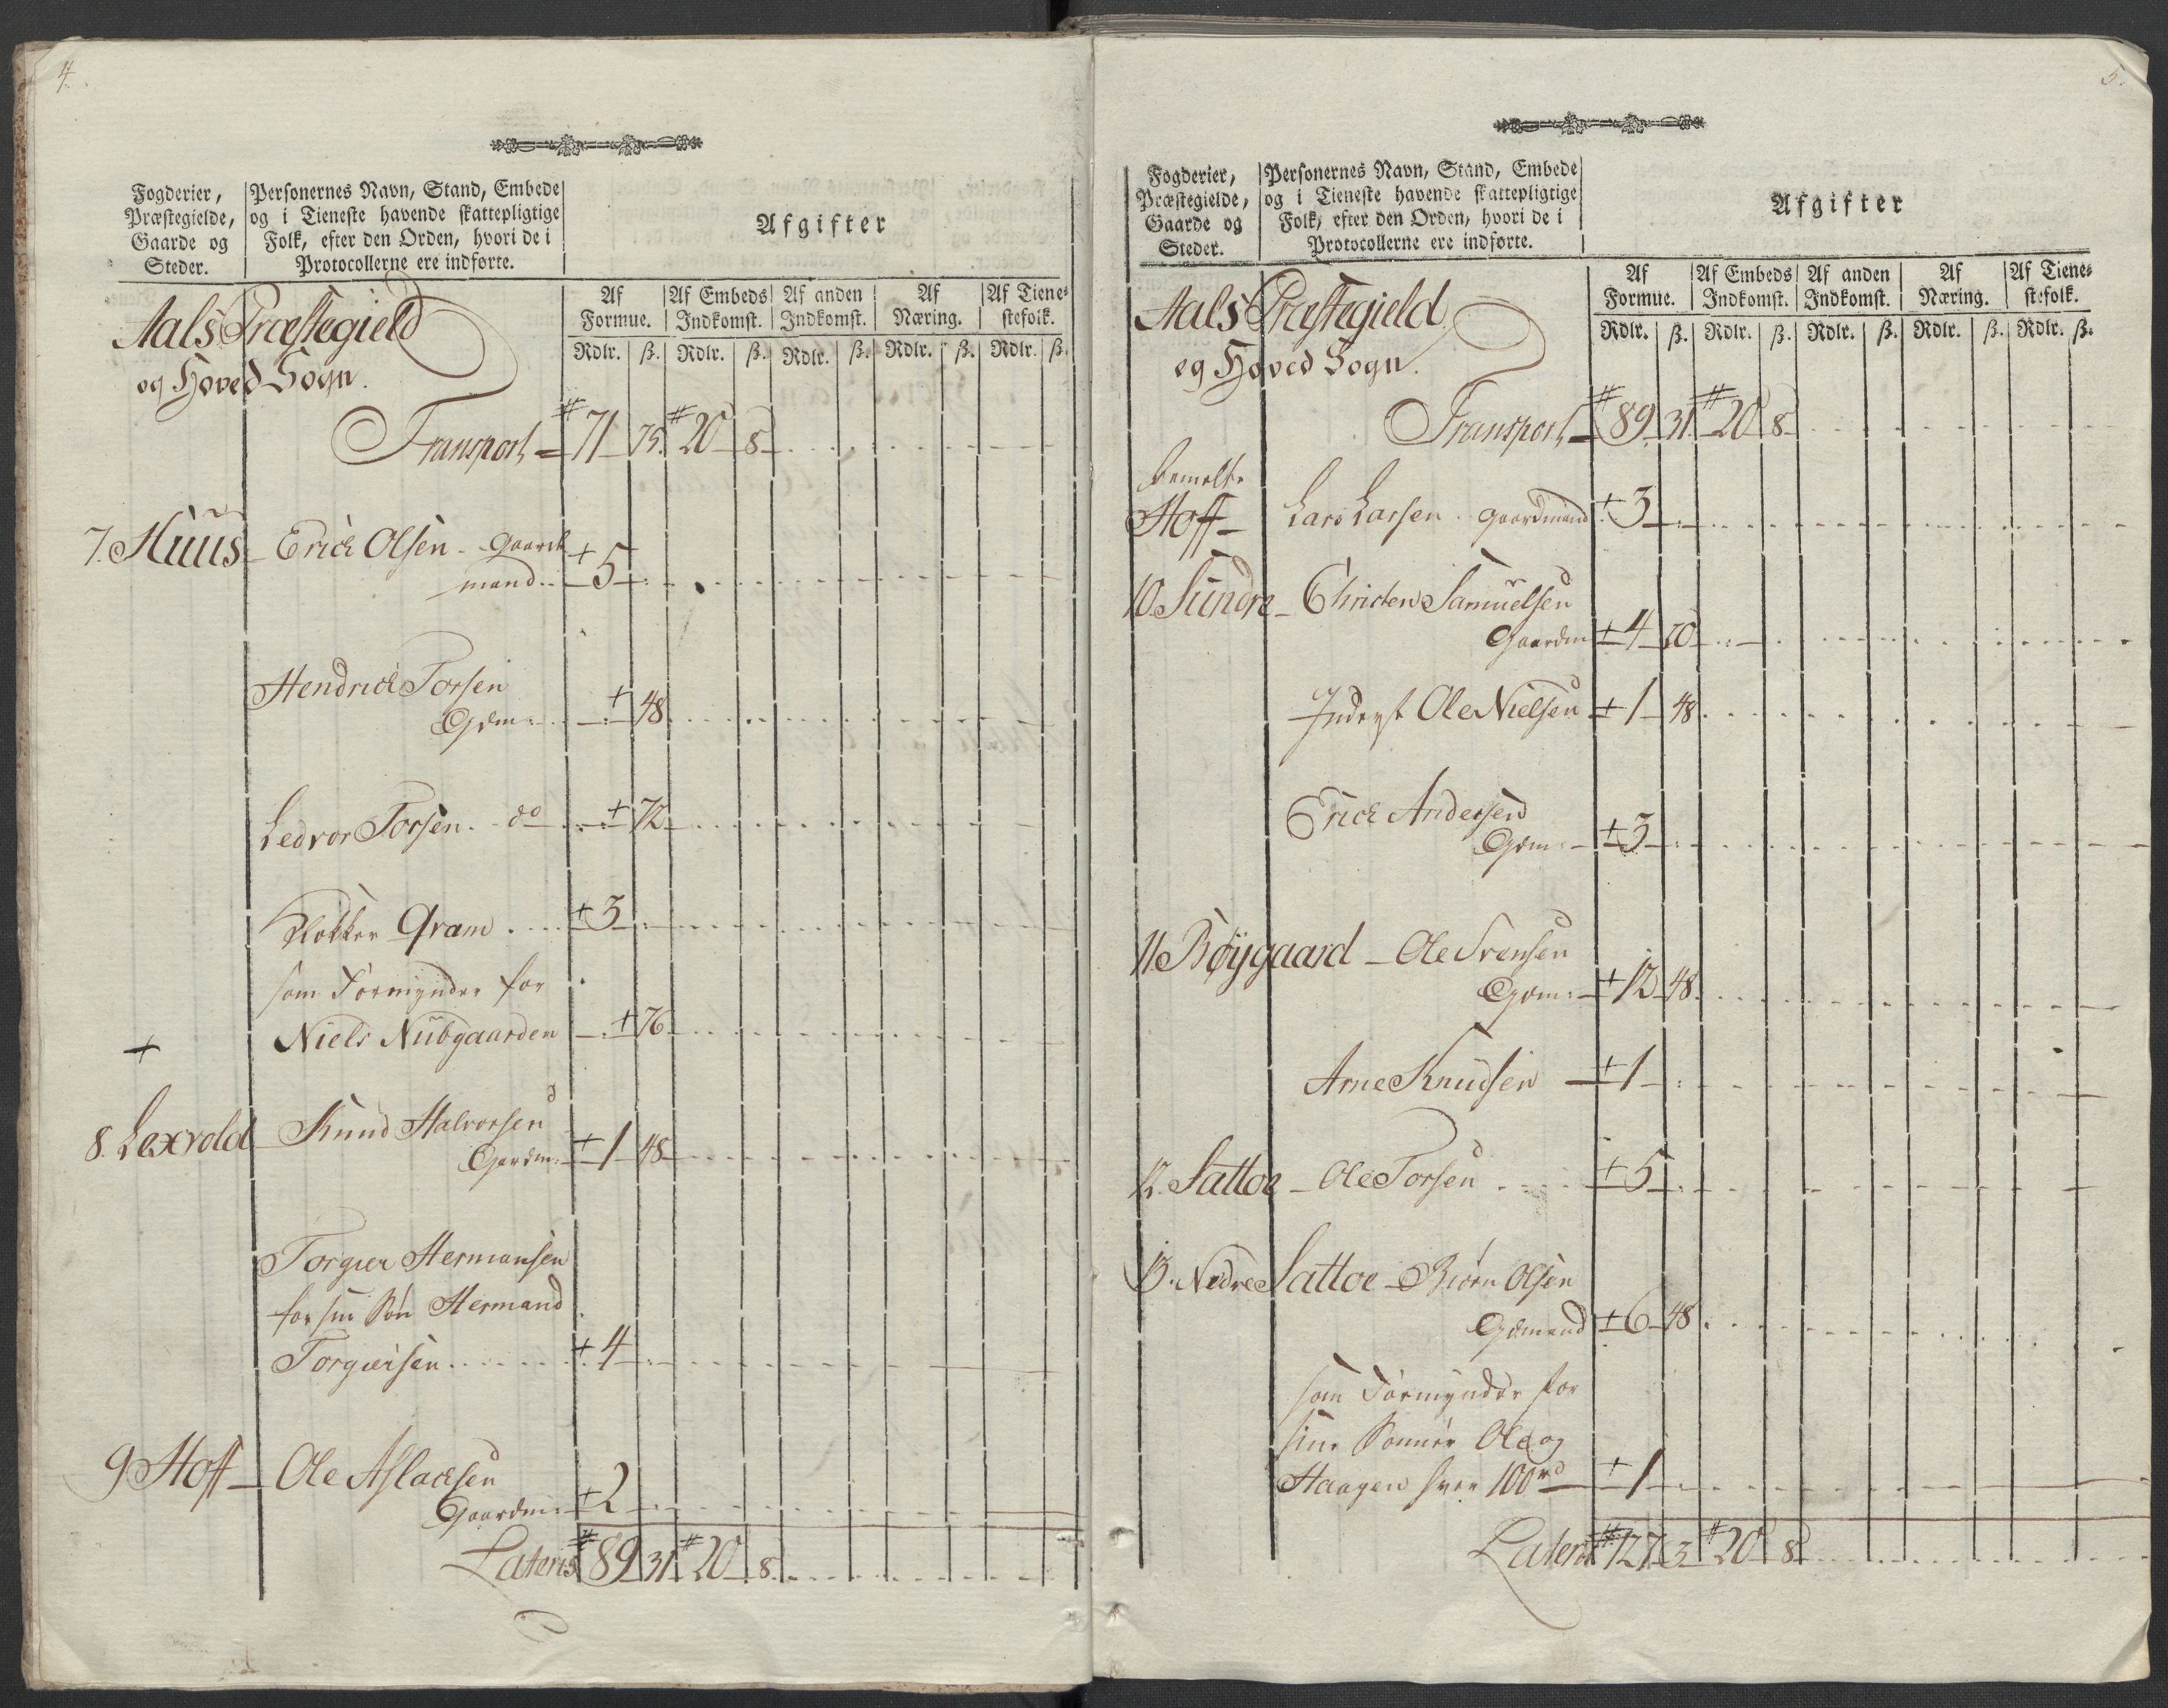 4.
Fogderier, Præstegielde, Gaarde og Steder.
Personernes Navn, Stand, Embede og i Tieneste havende skattepligtige Folk, efter den Orden, hvori de i Protocollerne ere indførte.
Afgifter
Af Formue. Af Embeds Indkomst. Af anden Indkomst. Af Næring. Af Tienestefolk.
Rdlr. ß. Rdlr. ß. Rdlr. ß. Rdlr. ß. Rdlr. ß.
Aals Præstegield
og Hoved Sogn.
Transport = 71 75. 20 8
7. Huus - Erick Olsen - Gaard
mand - 5
Hendrick Torsen
Gdm: 48
Ledvor Torsen. do 72
Klokker Gram . 3
som Formynder for
Niels Nubgaarden 76
8. Lexvold Knud Halvorsen
Gardm: 1 48
Torgier Hermansen
for sin Søn Hermand
Torgiersen 4
9 Hoff - Ole Aslacksen
Gaardm: 2
Lateris 89 31 20 8
5.
Fogderier, Præstegielde, Gaarde og Steder.
Personernes Navn, Stand, Embede og i Tieneste havende skattepligtige Folk, efter den Orden, hvori de i Protocollerne ere indførte.
Afgifter
Af Formue. Af Embeds Indkomst. Af anden Indkomst. Af Næring. Af Tienestefolk.
Rdlr. ß. Rdlr. ß. Rdlr. ß. Rdlr. ß. Rdlr. ß.
Aals Præstegield
og Hoved Sogn.
Transport = 89 31 20 8
bemelte
Hoff - Lars Larsen - Gaardmand 3
10. Sundre - Christen Samuelsen
Gaardm 4 20
Inderst Ole Nielsen 1 48
Erick Andersen
Gdm: 3
11. Bøygaard - Ole Svensen
Gdm: 12 48
Arne Knudsen - 1
12. Sattoe - Ole Torsen 5
13. Nedre Sattoe - Biørn Olsen
Gdmand 6 48
som Formynder for
sine Sønner Ole og
Haagen hver 100 rd 1
Lateris 127 3 20 8